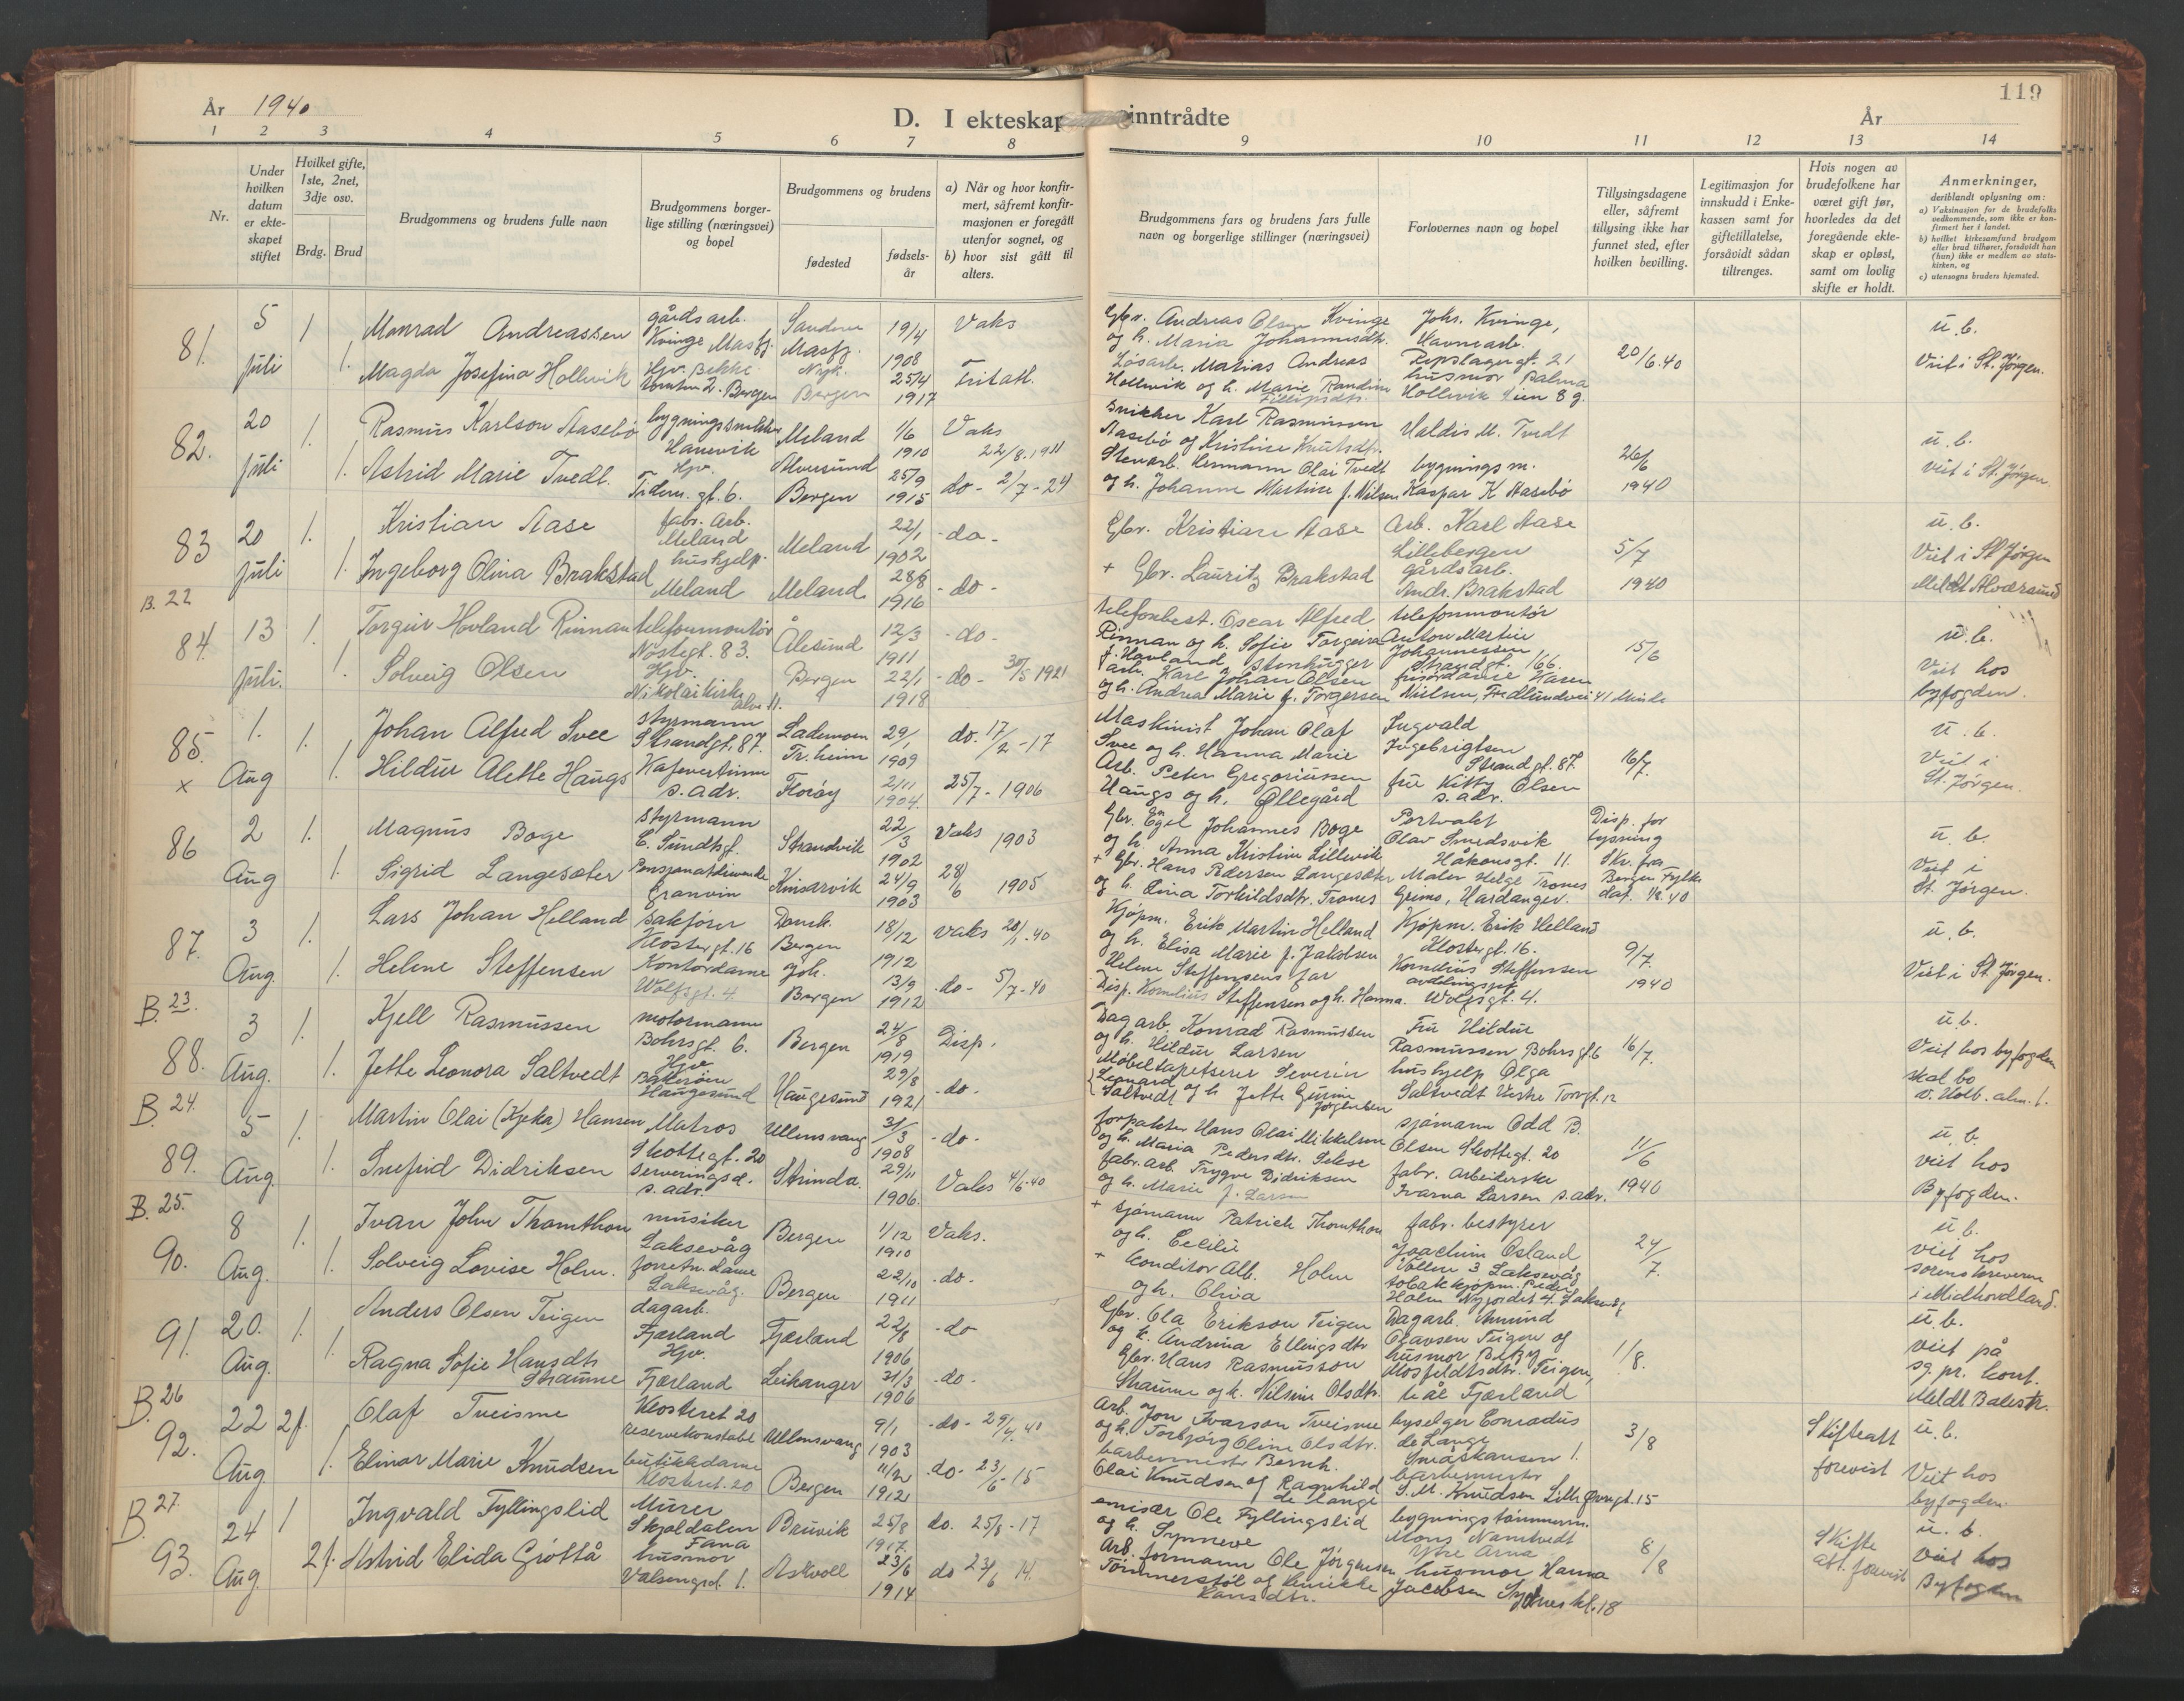 År 1940
119
D. I ekteskap inntrådte
År
1 2 3 4 5 6 7 8 9 10 11 12 13 14
Nr.
Under hvilken datum er ekteskapet stiftet
Hvilket gifte, 1ste, 2net, 3dje osv.
Brdg. Brud
Brudgommens og brudens fulle navn
Brudgommens borgerlige stilling (næringsvei) og bopel
Brudgommens og brudens
fødested
fødselsår
a) Når og hvor konfirmert, såfremt konfirmasjonen er foregått utenfor sognet, og
b) hvor sist gått til alters.
Brudgommens fars og brudens fars fulle navn og borgerlige stillinger (næringsvei)
Forlovernes navn og bopel
Tillysingsdagene eller, såfremt tillysing ikke har funnet sted, efter hvilken bevilling.
Legitimasjon for innskudd i Enkekassen samt for giftetillatelse, forsåvidt sådan tiltrenges.
Hvis nogen av brudefolkene har været gift før, hvorledes da det foregående ekteskap er opløst, samt om lovlig skifte er holdt.
Anmerkninger, deriblandt oplysning om:
a) Vaksinasjon for de brudefolks vedkommende, som ikke er konfirmert her i landet.
b) hvilket kirkesamfund brudgom eller brud tilhører, forsåvidt han (hun) ikke er medlem av statskirken, og
c) utensogns bruders hjemsted.
81. 5 juli 1
Monrad Andreassen
gårdsarb.
Kvinge Masfj.
Masfj.
19/4 1908
Vaks
Gbr. Andreas Olsen Kvinge
og h. Maria Johannesdtr.
Johs. Kvinge,
Havnearb.
20/6.40
u. b.
Viet i St. Jørgen.
1.
Magda Josefina Hollevik
Bergen
25/4 1917
Fritatt.
Løsarb. Matias Andreas
Hollevik og h. Marie Randine
Fillipsdtr.
Repslagergt. 21
husmor Palma
Hollevik
82. 20 juli 1.
Rasmus Karlson Aasebø
bygningssnekker
Hanevik
Meland
1/6 1910
Vaks
22/8.1911
snikker Karl Rasmussen
Aasebø og Kristine Knutsdtr.
Valdis M. Tvedt
26/6 1940
u. b.
viet i St. Jørgen
1.
Astrid Marie Tvedt.
Hjv.
Tidem. gt. 6.
Alversund
Bergen
25/9 1915
do - 2/7 - 24
Stenarb. Hermann Olai Tvedt
og h. Johanne Martine f. Nilsen
bygningsm.
Kaspar K Aasebø
83 20 juli 1.
Kristian Aase
fabr. Arb.
Meland
Meland
22/1 1902
- do -
Gbr. Kristian Aase
Arb. Karl Aase
Lillebergen
5/7 1940
u. b.
Viet i St Jørgen
Meldt Alversund
B. 22
1.
Ingeborg Olina Brakstad
hushjelp.
Meland
Meland
28/8 1916
- do -
+ Gbr. Lauritz Brakstad
gårdsarb.
Andr. Brakstad
84. 13 juli. 1.
Torgeir Hovland Rinnan
telefonmontør
Nøstegt. 83.
Ålesund
12/3 1911
- do -
telefonbest. Oscar Alfred
Rinnan og h. Sofie Torgeira
f. Hovland
telefonmontør
Anton Martin
Johannessen
Strandgt. 166.
15/6
u. b.
Viet hos
byfogden.
1.
Solveig Olsen
Hjv.
Nikolaikirke
alm. 11.
Bergen
22/1 1918
- do - 30/5 1921
stenhugger
arb. Karl Johan Olsen
og h. Andrea Marie f. Torgersen
Nielsen, Fredlundvei 41 Minde
85. x 1. Aug 1.
Johan Alfred Svee
styrmann
Strandgt. 87.
Lademoen
Tr.heim
29/1 1909
do. 17/2 - 17
Maskinist Johan Olaf
Svee og h. Hanna Marie
Ingvald
Ingebrigtsen
Strandgt. 87.
16/7.
u. b.
Viet i
St. Jørgen.
1.
Hildur Alette Haugs
Kafevertinne
s. adr.
Florøy
2/11 1904.
25/7 - 1906
Arb. Peter Gregoriussen
Haugs og h. Øllegård
fru Kitty Olsen
s. adr.
86 2 Aug 1.
Magnus Boge
styrmann
E. Sundtsgt.
Strandvik
22/3 1902
Vaks 1903
Gbr. Egil Johannes Boge
og h. Anna Kristine Lillevik
Portvakt
Olav Smedsvik
Håkonsgt. 11.
Disp. for
lysning
Skr. fra
Bergen Fylke
dat. 1/8.40
u. b.
Viet i
St. Jørgen.
1.
Sigrid Langesæter
Granvin
Kinsarvik
24/9 1903
28/6 1905
+ Gbr. Hans Pedersen Langesæter
og h. Lina Torkildsdtr. Trones
Maler Helge Trones
Grimo, Hardanger.
87. 3 Aug. 1.
Lars Johan Helland
sakfører
Klostergt. 16
Domk.
Bergen
18/12 1912
vaks 20/1.40
Kjøpm. Erik Martin Helland
og h. Elisa Marie f. Jakobsen
Kjøpm. Erik Helland
Klostergt. 16.
9/7. 1940
u. b.
Viet i St. Jørgen.
1.
Helene Steffensen
Kontordame
Wolfsgt. 4.
Joh.
Bergen
13/9 1912
- do - 5/7 - 40
Helene Steffensens far
Disp. Kornelius Steffensen og h. Hanna.
Kornelius Steffensen
avdelingssjef
Wolfsgt. 4.
B. 23.
88. 3 Aug. 1.
Kjell Rasmussen
motormann
Bohrsgt. 6.
Bergen
24/8 1919
Disp.
Dagarb. Konrad Rasmussen
og h. Hildur Larsen
Fru Hildur
Rasmussen Bohrsgt 6
16/7.
u. b.
Viet hos byfogden
skal bo
v. Holb. alm. 1.
1.
Jette Leonora Saltvedt
Hjv
Bakerøen
Haugesund
Haugesund
29/8 1921
- do -
Møbeltapetserer Severin
Leonard
Saltvedt og h Jette Gurine
Jørgensen
hushjelp Olga
Saltvedt Vestre Torvgt. 12
B. 24.
89. 5 Aug. 1.
Martin Olai (Kjeka) Hansen
Matros
Skottegt. 20
Ullensvang
31/3 1908
- do -
forpakter Hans Olai Mikkelsen
og h. Maria Pedersdtr. Sekse
sjømann Odd B.
Olsen Skottegt. 20
11/6 1940
u. b.
viet hos
Byfogden.
1.
Snefrid Didriksen
serveringsd.
s. adr.
Strinda.
29/11 1906.
Vaks 4/6-40
fabr. arb. Trygve Didriksen
og h. Marie f. Larsen
fabr. Arbeiderske
Ivarna Larsen s. adr.
B. 25.
90. 8 Aug. 1.
Ivan John Thomthon
musiker
Laksevåg
Bergen
1/12 1910
Vaks.
+ sjømann Patrick Thomthon
og h. Cecilie
fabr. bestyrer
Joachim Osland
Vollen 3 Laksevåg
24/7.
u. b.
viet hos
sorenskriveren
i Midhordland.
Solveig Lovise Holm.
forretn. dame
Laksevåg.
Bergen
22/10 1911
- do -
+ Conditor Alb. Holm
og h. Olivia
tobakkkjøpm. Peder
Holm Nygårdst 4. Laksevåg
91. 20. Aug. 1.
Anders Olsen Teigen
dagarb.
Fjærland
Fjærland
22/8 1906
- do
Gbr. Ola Erikson Teigen
og h. Andrina Ellingsdtr
Dagarb. Amund
Olavsen Teigen og
1/8.
u. b.
viet på
sg. pr. kont.
Meldt Balestr.
1.
Ragna Sofie Hansdtr
Skaumne
Hjv.
Fjærland
Leikanger
31/3 1906
- do -
Gbr. Hans Rasmusson
Skaumne og h. Nilsine Olsdtr.
husmor Betzy
Mosfeldtsdtr. Teigen,
b. åe Fjærland
B. 26
92. 22 Aug 2f.
Olaf Tveisme
Klosteret 20
reservekonstabel
Ullensvang
9/1 1903
- do - 29/4.40
Arb. Jon Ivarson Tveisme
og h. Torbjørg Oline Olsdtr.
byselger Conradus
de Lange
Småskansen 1.
3/8
Skifteatt
forevist
u. b.
Viet hos
byfogden.
1.
Elinor Marie Knudsen
butikkdame
Klosteret. 20
Bergen
11/2 1912
- do - 23/6 - 15
barbermester Bernh.
Olai Knudsen og Ragnhild
de Lange
barbermester
S. M. Knudsen Lille Øvregt. 15
B. 27.
93. 24 Aug. 1
Ingvald Fyllingslid
Murer
Skjoldalen
Fana
Bruvik
25/8 1917.
do. 25/8 - 17
emisær Ole Fyllingslid
og h. Synneve
bygningstømmerm.
Mons Namtvedt
Ytre Arna
8/8
Skifte
att. forevist
u. b.
Viet hos
Byfogden
2f.
Astrid Elida Grøttå
husmor
Askvoll
23/6 1914
do 23/6 14.
Arb. formann Ole Jørgensen
Tømmerstøl og Henrikke
Hansdtr.
husmor Hanna
Jacobsen Sydneskl. 18